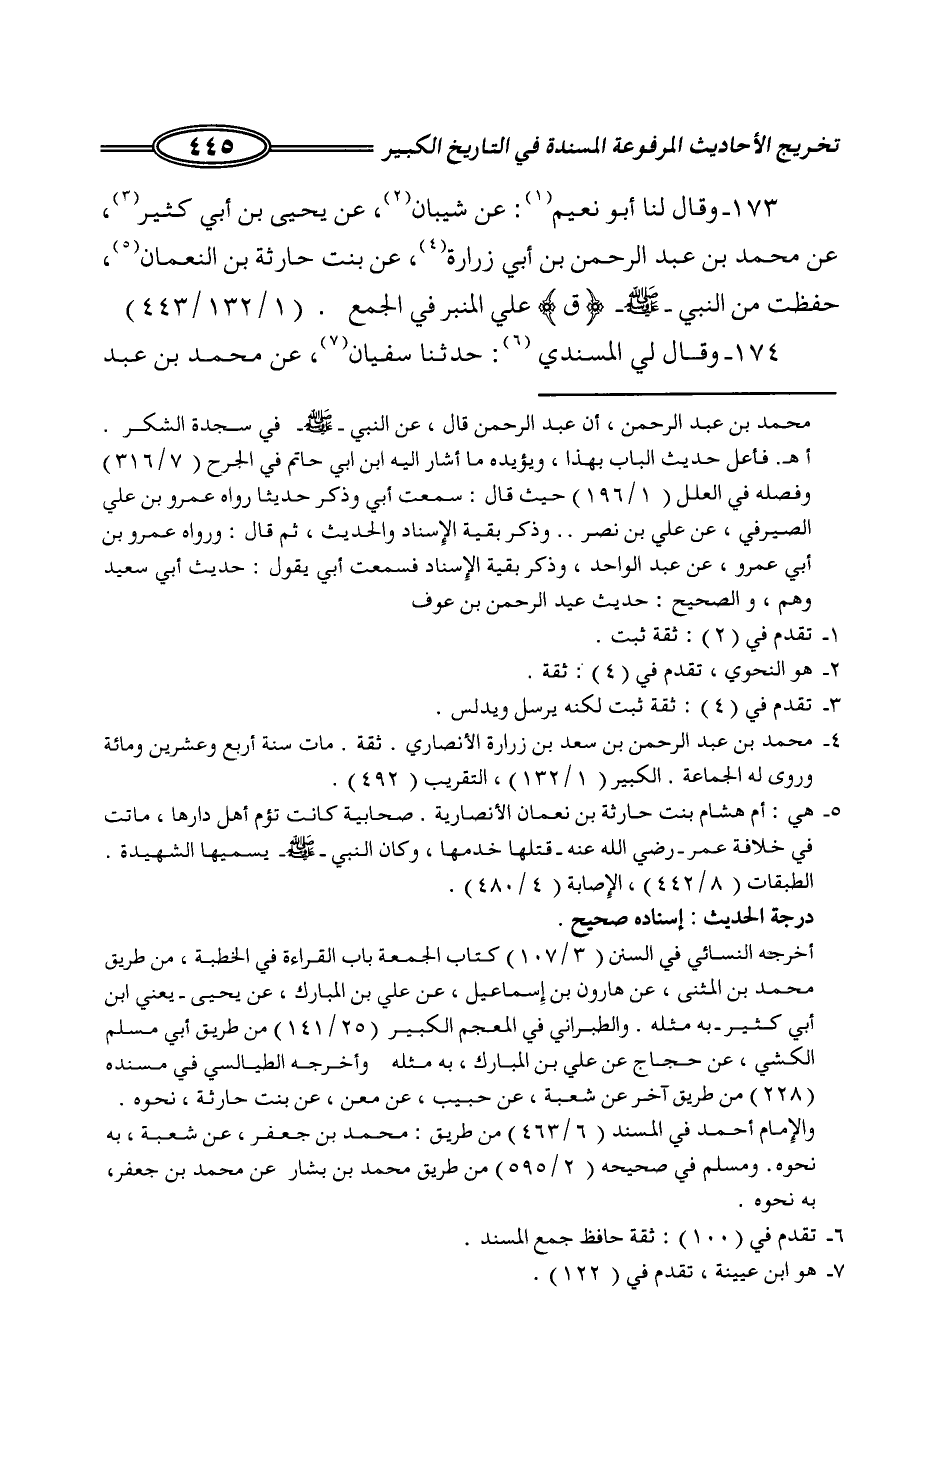 تخريج الأحاديث المرفوعة المسندة في التاريخ الكبير ٤٤٥
١٧٣ـ وقال لنا أبو نعيم(١): عن شيبان(٢)، عن يحيى بن أبي كثير(٣)،
عن محمد بن عبد الرحمن بن أبي زرارة(٤)، عن بنت حارثة بن النعمان(٥)،
حفظت من النبي ـ ﷺ ـ ﴿ ق ﴾ علي المنبر في الجمع . ( ١ /١٣٢ /٤٤٣ )
١٧٤ـ وقال لي المسندي (٦): حدثنا سفيان(٧)، عن محمد بن عبد
محمد بن عبد الرحمن ، أن عبد الرحمن قال ، عن النبي ـ ﷺ ـ في سجدة الشكر .
أ هـ. فأعل حديث الباب بهذا ، ويؤيده ما أشار اليه ابن ابي حاتم في الجرح ( ٧ /٣١٦ )
وفصله في العلل ( ١ /١٩٦ ) حيث قال : سمعت أبي وذكر حديثا رواه عمرو بن علي
الصيرفي ، عن علي بن نصر .. وذكر بقية الإسناد والحديث ، ثم قال : ورواه عمرو بن
أبي عمرو ، عن عبد الواحد ، وذكر بقية الإسناد فسمعت أبي يقول : حديث أبي سعيد
وهم ، و الصحيح : حديث عيد الرحمن بن عوف
١ـ تقدم في ( ٢ ) : ثقة ثبت .
٢ـ هو النحوي ، تقدم في ( ٤ ) : ثقة .
٣ـ تقدم في ( ٤ ) : ثقة ثبت لكنه يرسل ويدلس .
٤ـ محمد بن عبد الرحمن بن سعد بن زرارة الأنصاري . ثقة . مات سنة أربع وعشرين ومائة
وروى له الجماعة . الكبير ( ١ /١٣٢ ) ، التقريب ( ٤٩٢ ) .
٥ـ هي : أم هشام بنت حارثة بن نعمان الأنصارية . صحابية كانت تؤم أهل دارها ، ماتت
في خلافة عمر ـ رضي الله عنه ـ قتلها خدمها ، وكان النبي ـ ﷺ ـ يسميها الشهيدة .
الطبقات ( ٨ /٤٤٢ ) ، الإصابة ( ٤ /٤٨٠ ) .
درجة الحديث : إسناده صحيح .
أخرجه النسائي في السنن ( ٣ /١٠٧ ) كتاب الجمعة باب القراءة في الخطبة ، من طريق
محمد بن المثنى ، عن هارون بن إسماعيل ، عن علي بن المبارك ، عن يحيى ـ يعني ابن
أبي كثير ـ به مثله . والطبراني في المعجم الكبير ( ٢٥ /١٤١ ) من طريق أبي مسلم
الكشي ، عن حجاج عن علي بن المبارك ، به مثله وأخرجه الطيالسي في مسنده
( ٢٢٨ ) من طريق آخر عن شعبة ، عن حبيب ، عن معن ، عن بنت حارثة ، نحوه .
والإمام أحمد في المسند ( ٦ /٤٦٣ ) من طريق : محمد بن جعفر ، عن شعبة ، به
نحوه. ومسلم في صحيحه ( ٢ /٥٩٥ ) من طريق محمد بن بشار عن محمد بن جعفر،
به نحوه .
٦ـ تقدم في ( ١٠٠ ) : ثقة حافظ جمع المسند .
٧ـ هو ابن عيينة ، تقدم في ( ١٢٢ ) .